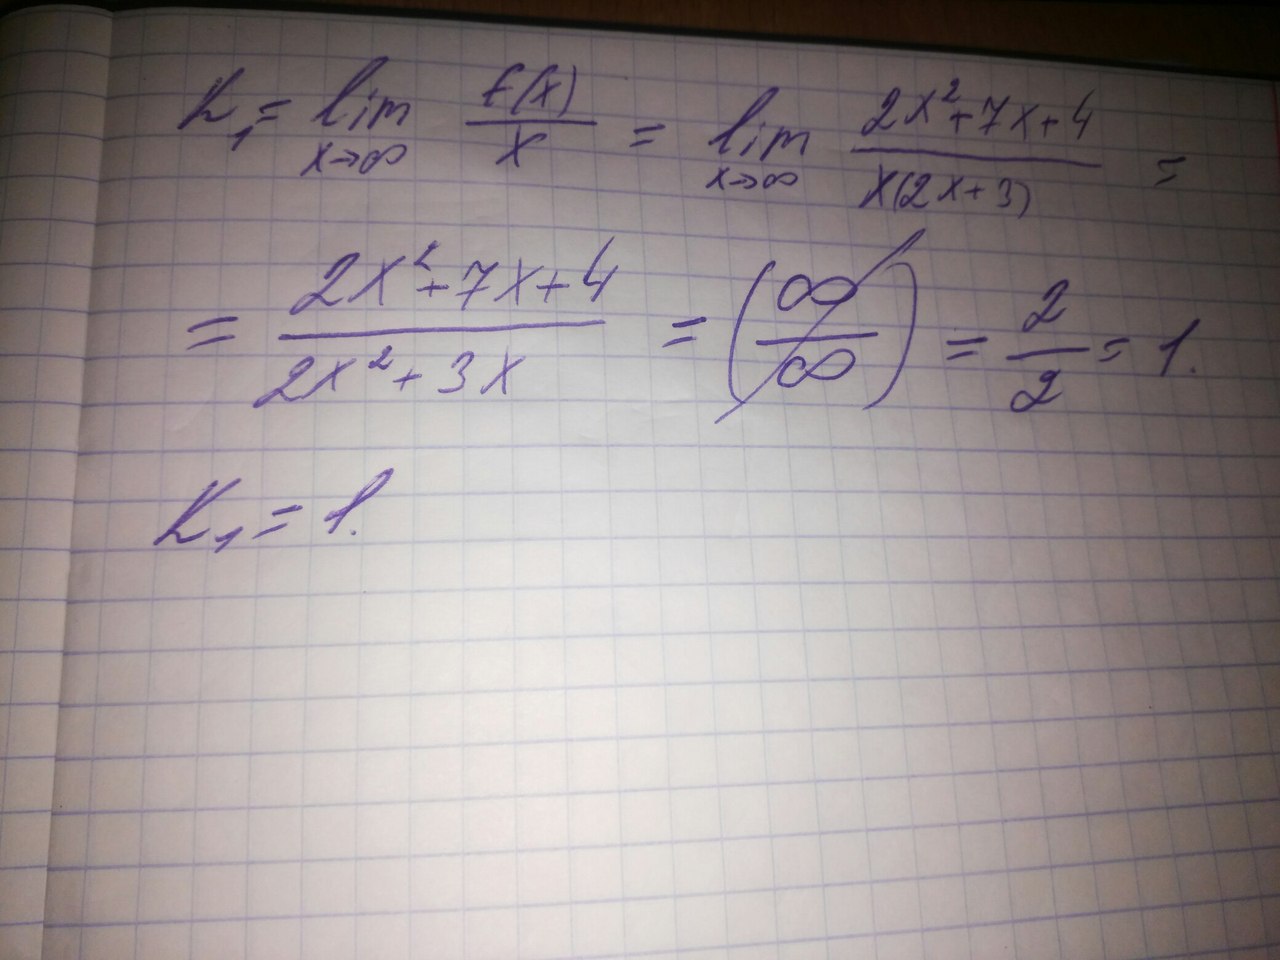 K₁ = lim x→∞ f(x)/x = lim x→∞ (2x²+7x+4)/(x(2x+3)) =
= (2x²+7x+4)/(2x²+3x) = (∞/∞) = 2/2 = 1.
K₁ = 1.